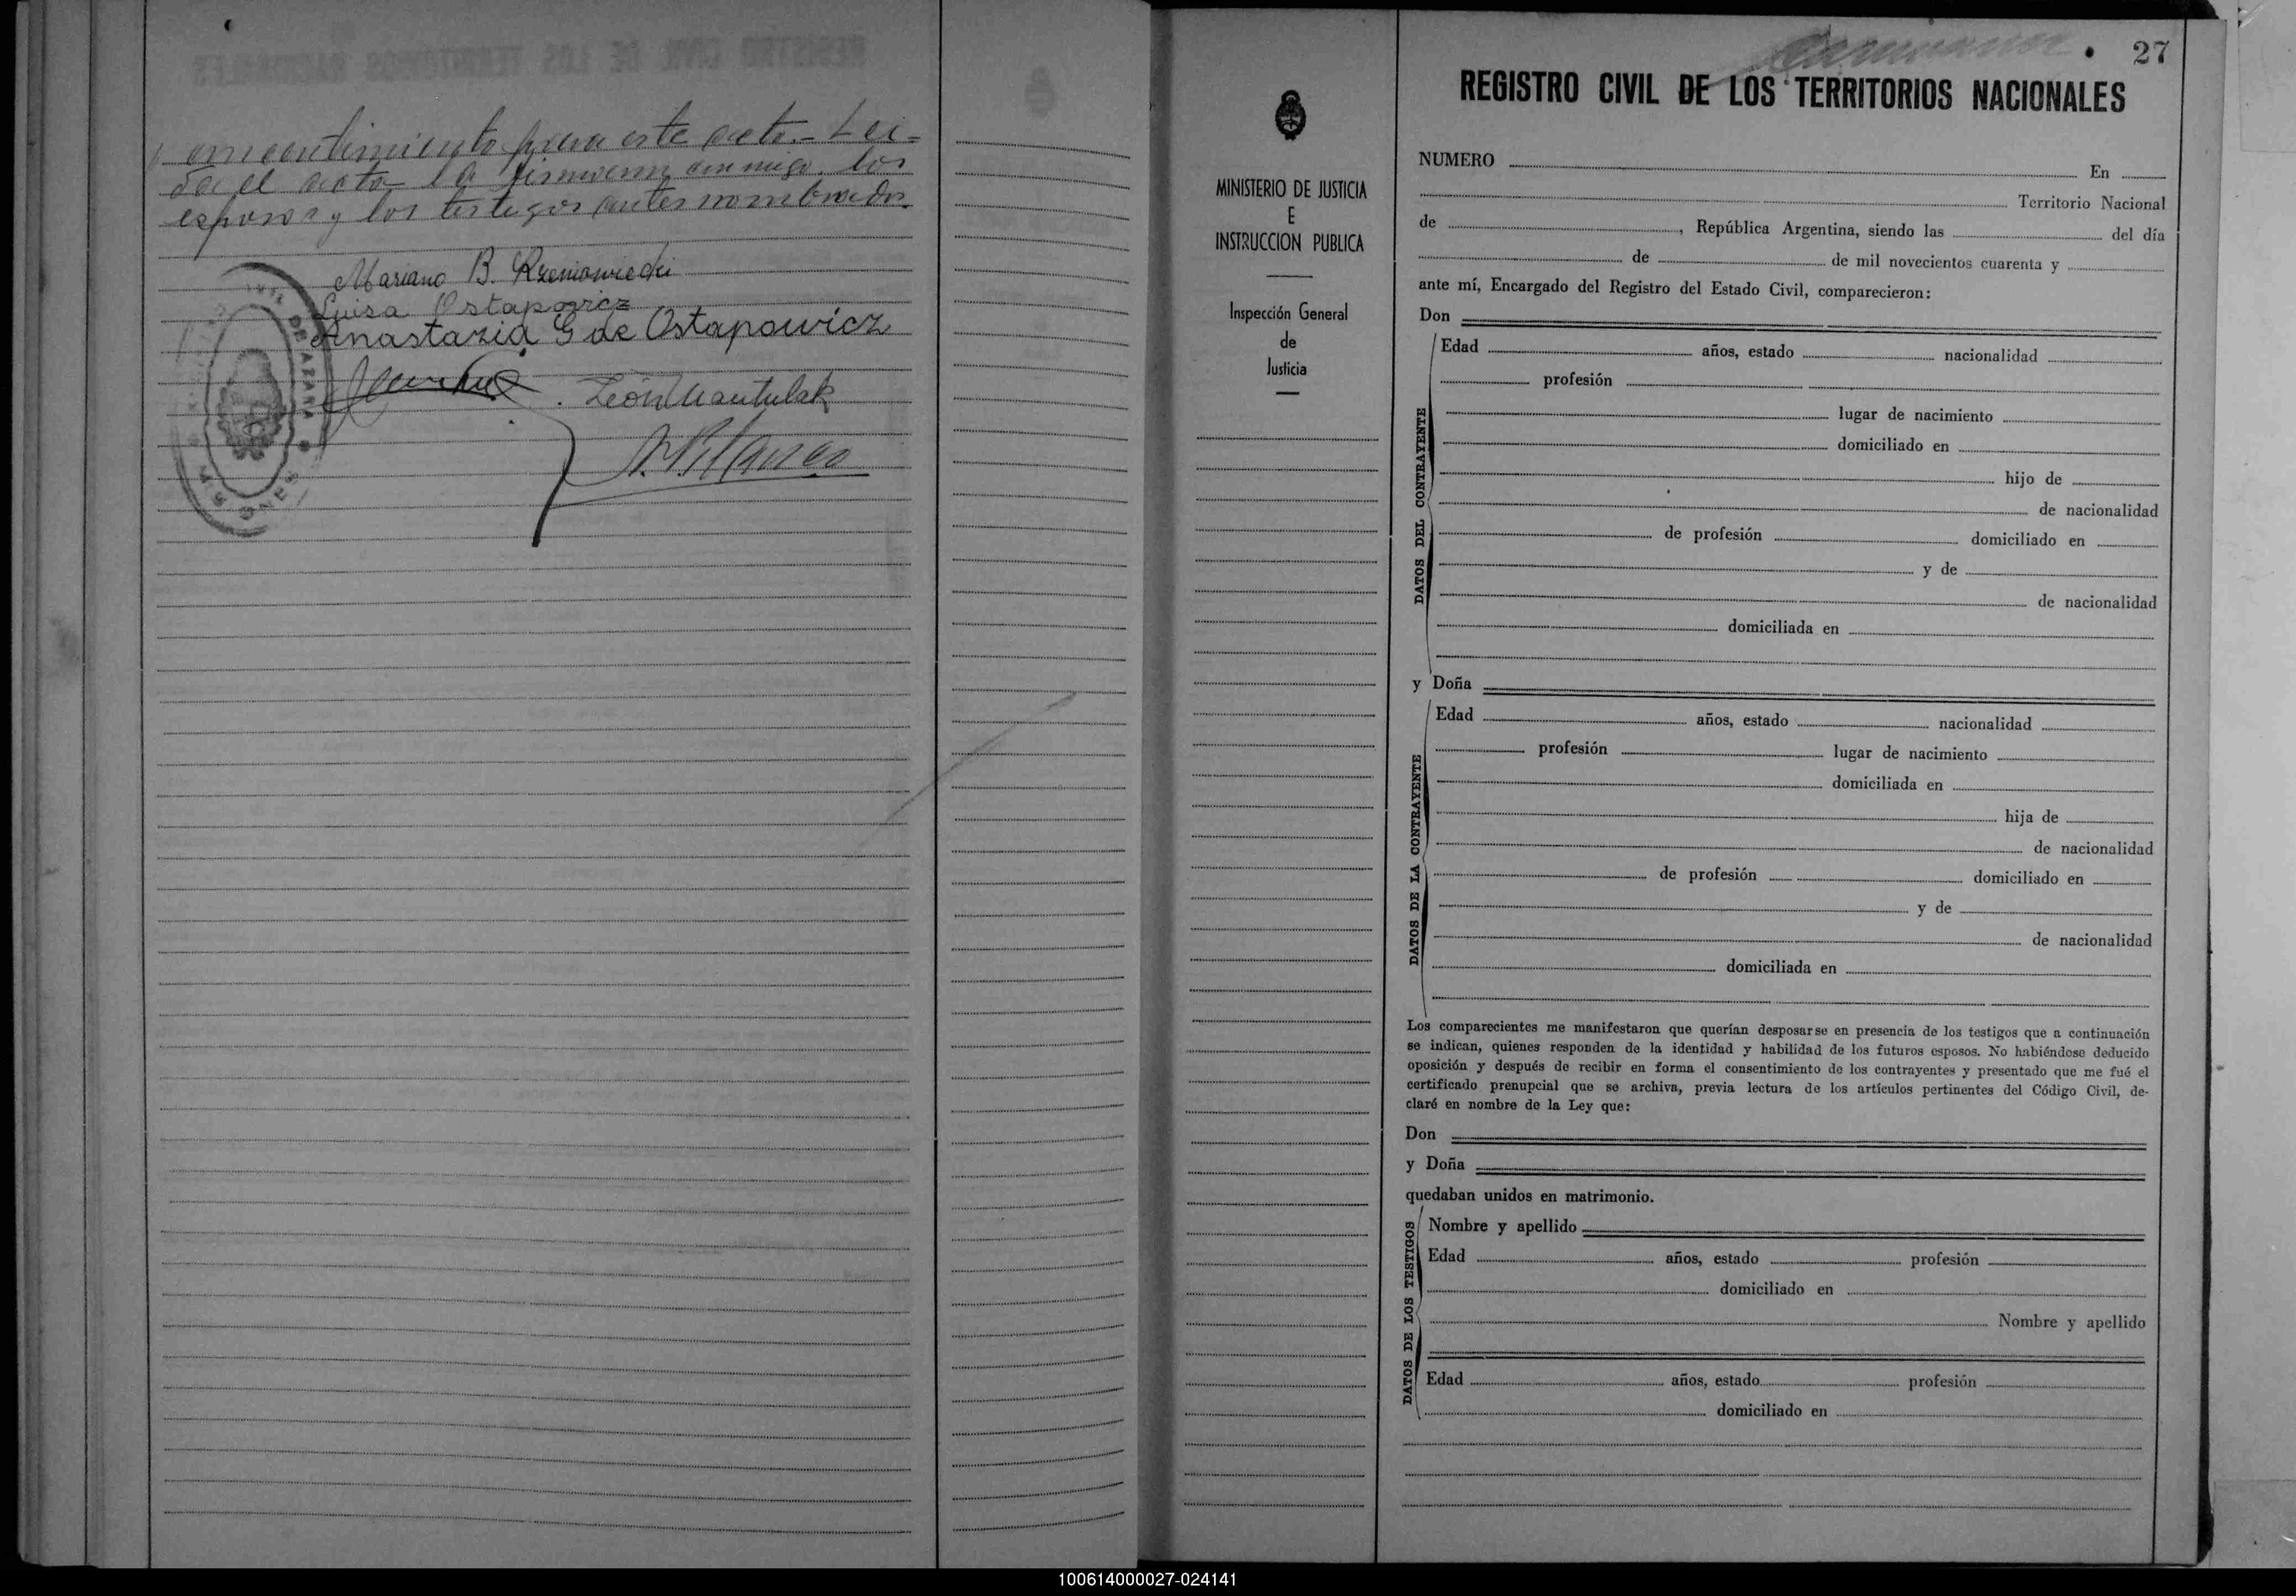 consentimiento para este acto.- Lei-
da el acta, la firmaron conmigo, los
esposos y los testigos antes nombrados.
Mariano B. Rzeniowiecki
Luisa Ostapowicz
Anastazia G de Ostapowicz
León Mantulak
DE AZARA
MISIONES
27
REGISTRO CIVIL DE LOS TERRITORIOS NACIONALES
MINISTERIO DE JUSTICIA
E
INSTRUCCION PUBLICA
Inspección General
de
Justicia
NUMERO
En
Territorio Nacional
de , República Argentina, siendo las del día
de de mil novecientos cuarenta y
ante mí, Encargado del Registro del Estado Civil, comparecieron:
Don
DATOS DEL CONTRAYENTE
Edad años, estado nacionalidad
profesión
lugar de nacimiento
domiciliado en
hijo de
de nacionalidad
de profesión domiciliado en
y de
de nacionalidad
domiciliada en
y Doña
DATOS DE LA CONTRAYENTE
Edad años, estado nacionalidad
profesión lugar de nacimiento
domiciliada en
hija de
de nacionalidad
de profesión domiciliado en
y de
de nacionalidad
domiciliada en
Los comparecientes me manifestaron que querían desposarse en presencia de los testigos que a continuación
se indican, quienes responden de la identidad y habilidad de los futuros esposos. No habiéndose deducido
oposición y después de recibir en forma el consentimiento de los contrayentes y presentado que me fué el
certificado prenupcial que se archiva, previa lectura de los artículos pertinentes del Código Civil, de-
claré en nombre de la Ley que:
Don
y Doña
quedaban unidos en matrimonio.
DATOS DE LOS TESTIGOS
Nombre y apellido
Edad años, estado profesión
domiciliado en
Nombre y apellido
Edad años, estado profesión
domiciliado en
100614000027-024141